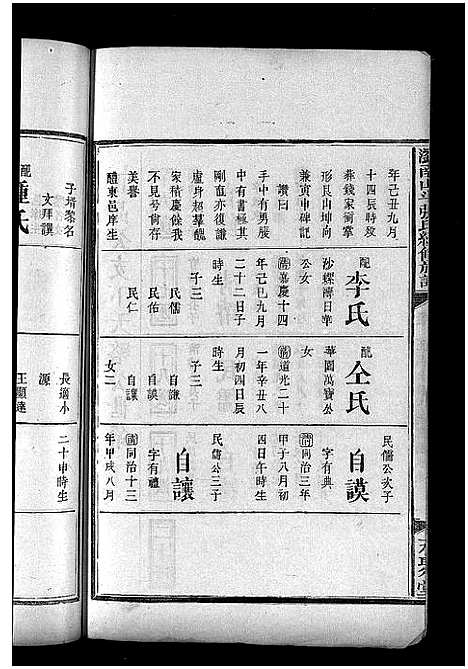 年己丑九月
十四辰時歿
葬錢家衕掌
形艮山坤向
兼寅申碑記
贊曰
中有勇脈
中有書極其
剛直亦復謙
虛身超羣醜
家積慶餘我
不見兮尚存
美譽
醴東邑庠生
子壻黎名
文拜譔
配李氏
沙螺濟日華
公女
清嘉慶十四
年己巳九月
二十二日子
時生
子三
民儒
民佑
民仁
配仝氏
華園萬寶公
女
清道光二十
一年辛丑八
月初四日辰
時生
子三
自謙
自謨
自讓
女二
長適小
源
王顯達
民儒公次子
自謨
字有典
清同治三年
甲子八月初
四日午時生
民儒公三子
自讓
字有禮
清同治十三
年甲戌八月
二十申時生